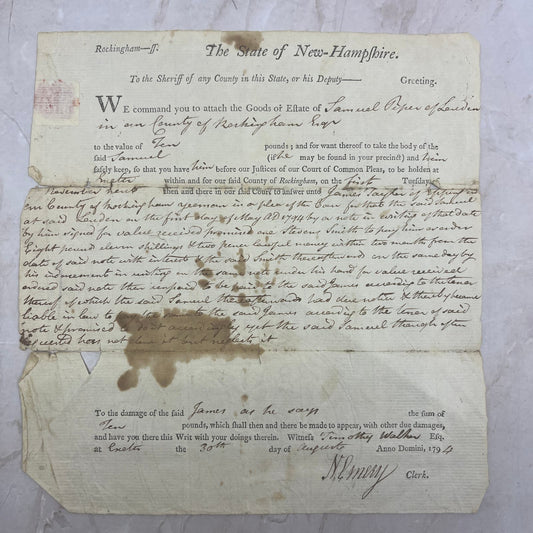 Rockingham—ss. The State of New-Hampshire.
To the Sheriff of any County in this State, or his Deputy—— Greeting.
WE command you to attach the Goods of Estate of Samuel Piper of Loudon
in our County of Rockingham Esqr
to the value of Ten pounds; and for want thereof to take the body of the
said Samuel (if he may be found in your precinct) and him
safely keep, so that you have him before our Justices of our Court of Common Pleas, to be holden at
Exeter within and for our said County of Rockingham, on the first Tuesday
November next then and there in our said Court to answer unto James Taylor of
our County of Rockingham yeoman in a plea of the Case for that the said Samuel
at said Loudon on the first day of May AD 1794 by a note in writing of that date
by him signed for value received promised one Stevens Smith to pay him or order
Eight pound eleven shillings & two pence lawful money within two month from the
date of said note with interest & the said Smith thereafterward on the same day by
his indorsement in writing on the same note under his hand for value received
ordered said note then unpaid to be paid to the said James according to the tenor
thereof of which the said Samuel thereafterwards had due notice & thereby became
liable in law to pay the same to the said James according to the tenor of said
note & promised to do it accordingly yet the said Samuel though often
requested has not done it but neglects it
To the damage of the said James as he says the sum of
Ten pounds, which shall then and there be made to appear, with other due damages,
and have you there this Writ with your doings therein. Witness Timothy Walker Esq.
at Exeter the 30th day of Augusts Anno Domini, 1794
N Emery Clerk.